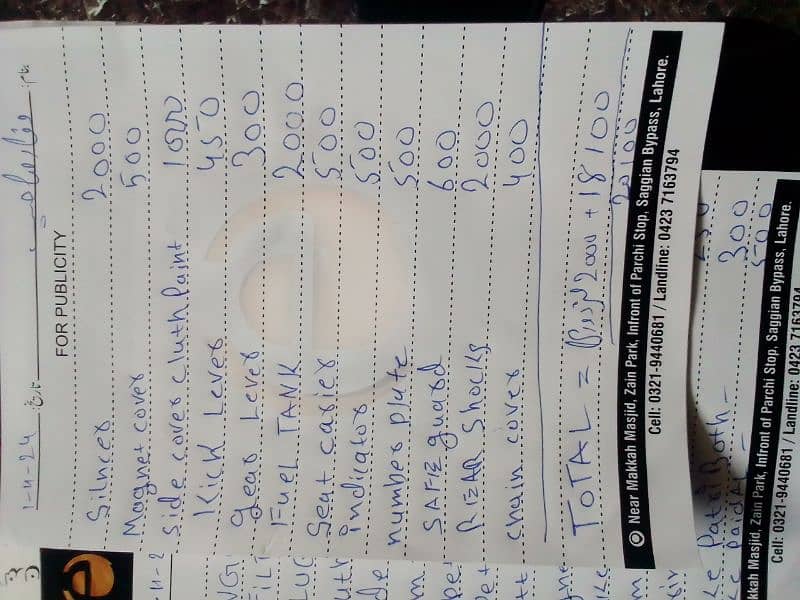 1-4-24
FOR PUBLICITY
Silncer 2000
Magnet cover 500
Side cover cluth Paint 1500
Kick Lever 450
gear Lever 300
Fuel TANK 2000
Seat carier 500
indicator 500
number plate 500
SAFE guard 600
REAR Shocks 2000
chain cover 400
TOTAL = 2000 + 18100
20100
Near Makkah Masjid, Zain Park, Infront of Parchi Stop, Saggian Bypass, Lahore.
Cell: 0321-9440681 / Landline: 0423 7163794
300
500
kkah Masjid, Zain Park, Infront of Parchi Stop, Saggian Bypass, Lahore.
Cell: 0321-9440681 / Landline: 0423 7163794